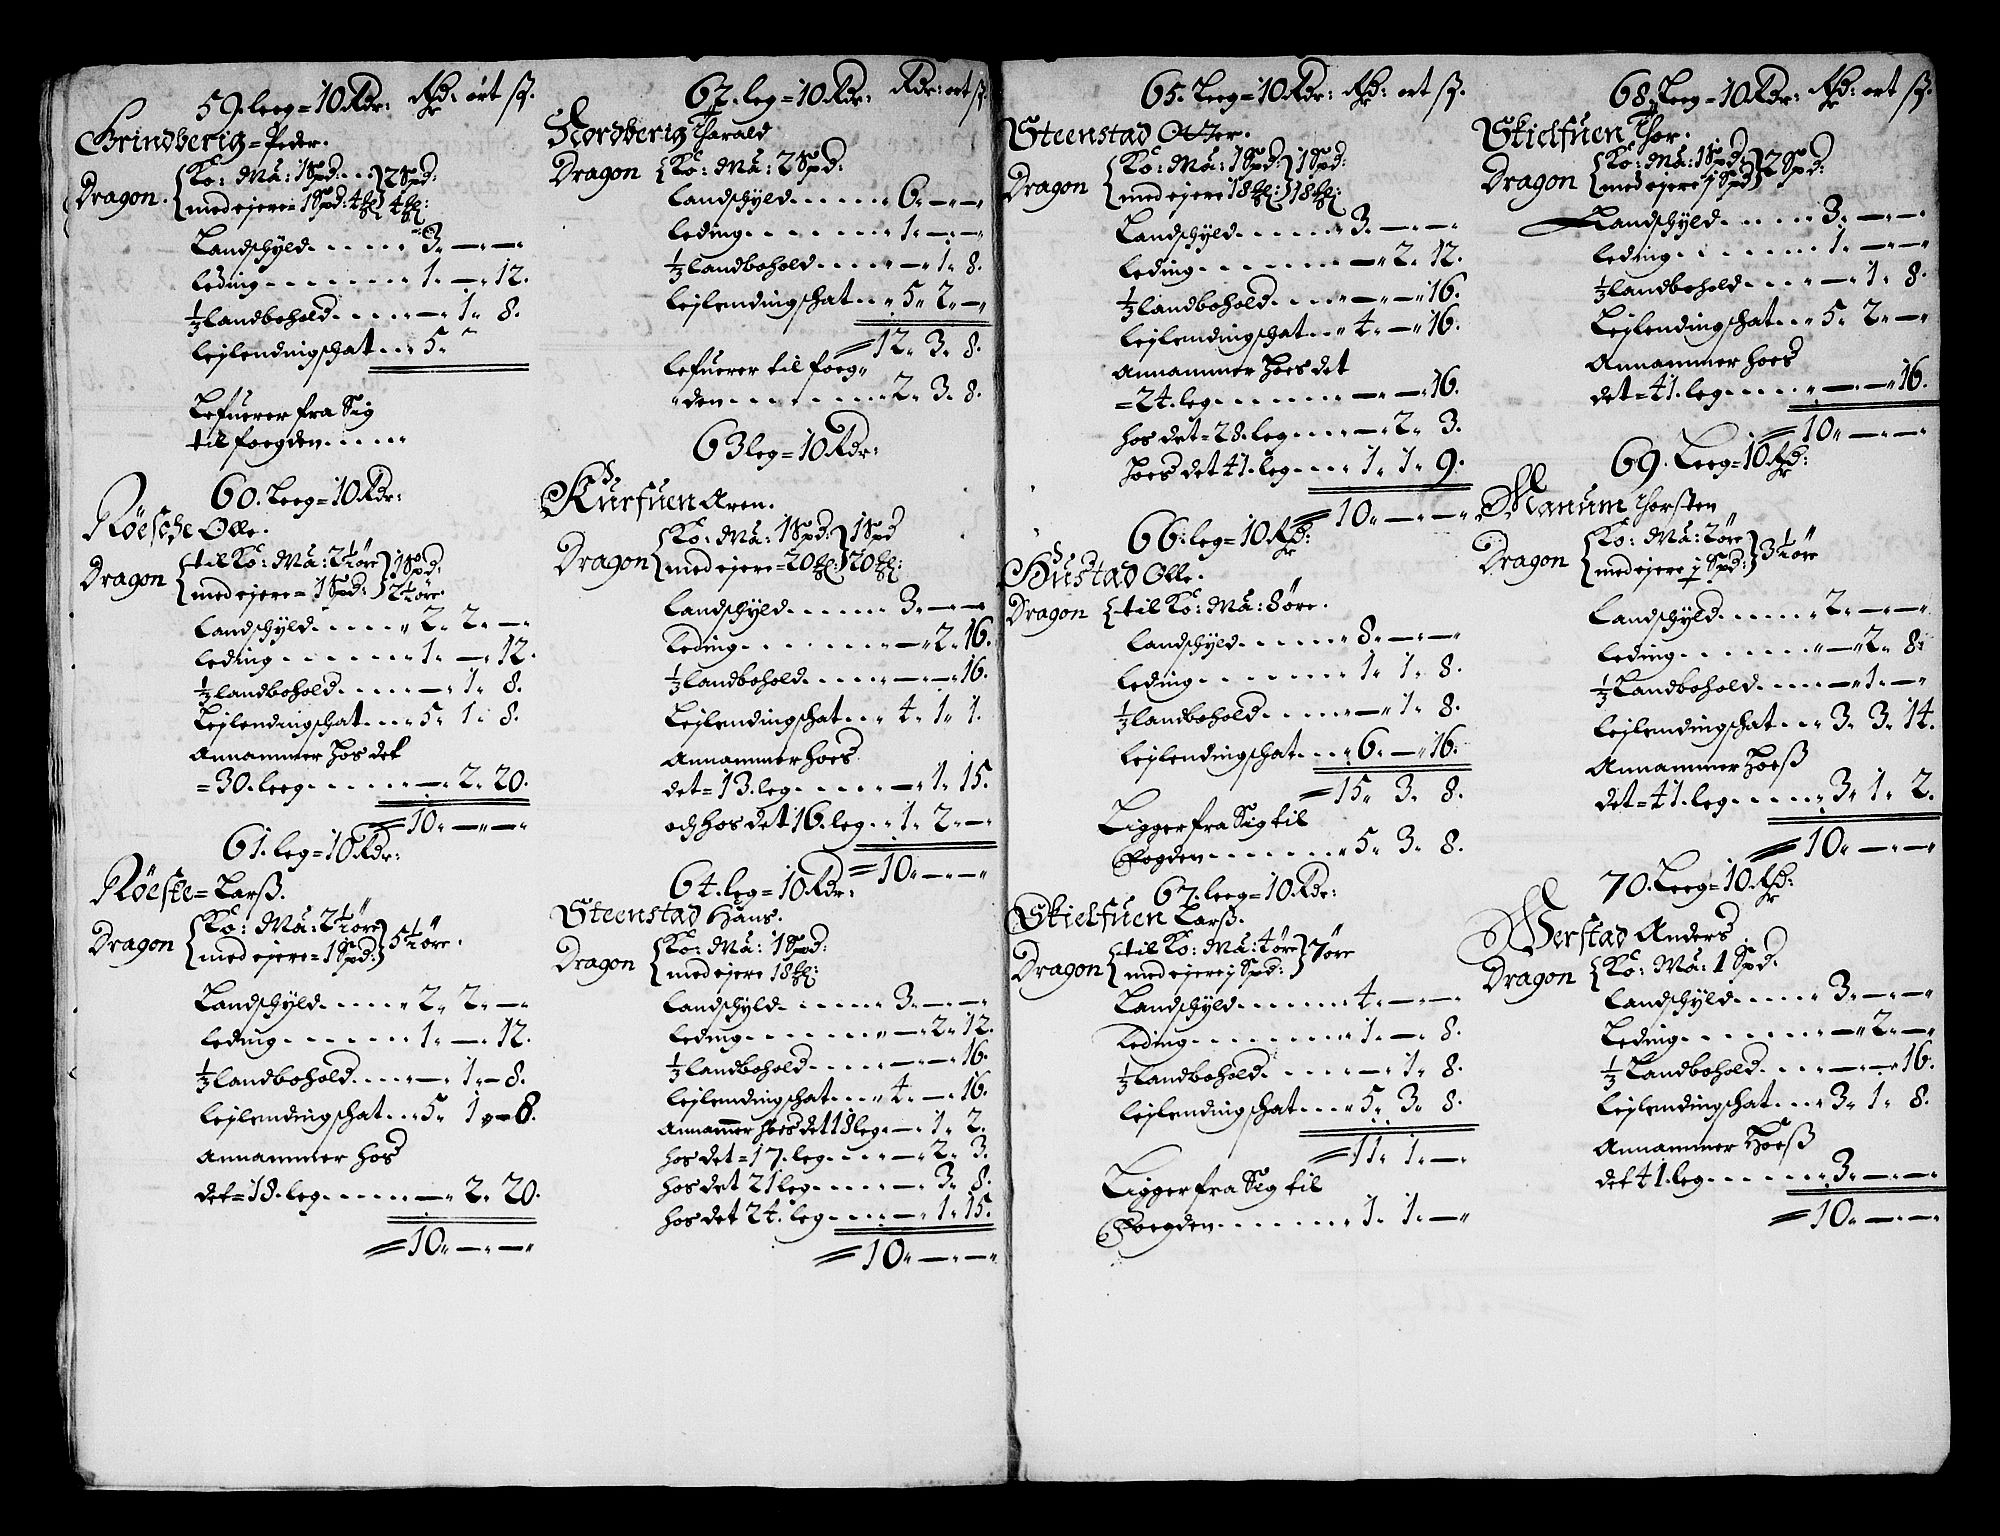 59. Leeg = 10 Rdr: Rd: ort sz.
Grindberig = Peder.
Dragon. {Ko: Ma: 1 Spd: . . } 2 Spd:
{med ejere = 1 Spd: 4 } 4
Landschÿld . . . . . . . 3. — —
Leding . . . . . . . . 1. — 12.
½ Landbohold . . . . . — 1. 8.
Lejlendingschat . . . 5.
Lefuerer fra Sig
til foegden . . . . .
60. Leeg = 10 Rdr:
Röesche Olle.
Dragon {til Ko: Ma: 2½ öre} 1 Spd:
{med ejere = 1 Spd:} 2½ öre.
Landschÿld . . . . . . 2. 2. —
Leding . . . . . . . . 1. — 12.
½ Landbohold . . . . . — 1. 8.
Lejlendingschat . . . 5. 1. 8.
Annammer hos det
= 30. Leeg . . . . . . . — 2. 20.
= 10. — —
61. Leg = 10 Rdr:
Röeste = Larß.
Dragon {Ko: Ma: 2½ öre} 5½ öre.
{med ejere = 1 Spd:}
Landschÿld . . . . . . 2. 2. —
Leding . . . . . . . . 1. — 12.
½ Landbohold . . . . . — 1. 8.
Lejlendingschat . . . 5. 1. 8.
Annammer hos
det = 18. Leg . . . . . . — 2. 20.
= 10. — —
62. Leg = 10 Rdr: Rdr: ort sz.
Nordberig Harald
Dragon {Ko: Ma: 2 Spd:
Landschÿld . . . . . . 6. — —
Leding . . . . . . . . 1. — —
½ Landbohold . . . . . — 1. 8.
Lejlendingschat . . 5. 2. —
= 12. 3. 8.
Lefuerer til foeg-
den . . . . . . . . . 2. 3. 8.
63 Leg = 10 Rdr:
Kurfuen Aren.
Dragon {Ko: Ma: 1 Spd:} 1 Spd
{med ejere = 20 } 20
Landschÿld . . . . . . 3. — —
Leding . . . . . . . . — 2. 16.
½ Landbohold . . . . . — — 16.
Lejlendingschat . . 4. 1. 1.
Annammer hoes
det = 13. Leg . . . . . . — 1. 15.
och hos det 16. Leg . . 1. 2. —
= 10. — —
64. Leg = 10 Rdr:
Steenstad Hans.
Dragon {Ko: Ma: 1 Spd:
{med ejere 18
Landschÿld . . . . . . 3. — —
Leding . . . . . . . . — 2. 12.
½ Landbohold . . . . . — — 16.
Lejlendingschat . . . 4. — 16.
Annammer hoes det 18 Leg . — 1. 2.
hos det = 17. Leg . . . . — 2. 3.
hos det 21 Leg . . . . . — 3. 8.
hos det 24. Leg . . . . — 1. 15.
= 10. — —
65. Leeg = 10 Rdr: Rd: ort sz.
Steenstad Otter.
Dragon {Ko: Ma: 1 Spd:} 1 Spd:
{med ejere 18 } 18
Landschÿld . . . . . . . 3. — —
Leding . . . . . . . . — 2. 12.
½ Landbohold . . . . . — — 16.
Lejlendingschat . . 4. — 16.
Annammer hoes det
= 24. Leg . . . . . . . — — 16.
hos det = 28. Leg . . . . — 2. 3.
hoes det 41. Leg . . . 1. 1. 9.
= 10. — —
66. Leg = 10 Rd:
Hustad Olle.
Dragon {til Ko: Ma: 8 öre.
Landschÿld . . . . . . 8. — —
Leding . . . . . . . . 1. 1. 8.
½ Landbohold . . . . . — 1. 8.
Lejlendingschat . . . 6. — 16.
= 15. 3. 8.
Ligger fra Sig til
Fogden . . . . . . . 5. 3. 8.
67. Leeg = 10 Rdr:
Skielfuen Larß.
Dragon {til Ko: Ma: 4 öre} 7 öre
{med ejere ½ Spd:}
Landschÿld . . . . . . . 4. — —
Leding . . . . . . . . 1. — 8.
½ Landbohold . . . . . — 1. 8.
Lejlendingschat . . . 5. 3. 8.
= 11. 1. —
Ligger fra Sig til
Foegden . . . . . . . 1. 1. —
68. Leeg = 10 Rdr: Rd: ort sz.
Skielfuen Thor.
Dragon {Ko: Ma: 1 Spd:} 2 Spd:
{med ejere 1 Spd}
Landschÿld . . . . . . 3. — —
Leding . . . . . . . . 1. — —
½ Landbohold . . . . . — 1. 8.
Lejlendingschat . . 5. 2. —
Annammer hoes
det = 41. Leg . . . . . — — 16.
= 10. — —
69. Leeg = 10 Rd:
Manum Thorsten
Dragon {Ko: Ma: 2 öre} 3½ öre
{med ejere ½ Spd:}
Landschÿld . . . . . . 2. — —
Leding . . . . . . . . — 2. 8.
½ Landbohold . . . . — 1. —
Lejlendingschat . . . 3. 3. 14.
Annammer hoeß
det = 41. Leg . . . . . 3. 1. 2.
= 10. — —
70. Leeg = 10 Rd:
Werstad Anders
Dragon {Ko: Ma: 1 Spd.
Landschÿld . . . . . 3. — —
Leding . . . . . . . . — 2. —
½ Landbohold . . . . . — — 16.
Lejlendingschat . . . 3. 1. 8.
Annammer hoeß
det 41. Leg . . . . . . 3. — —
= 10. — —